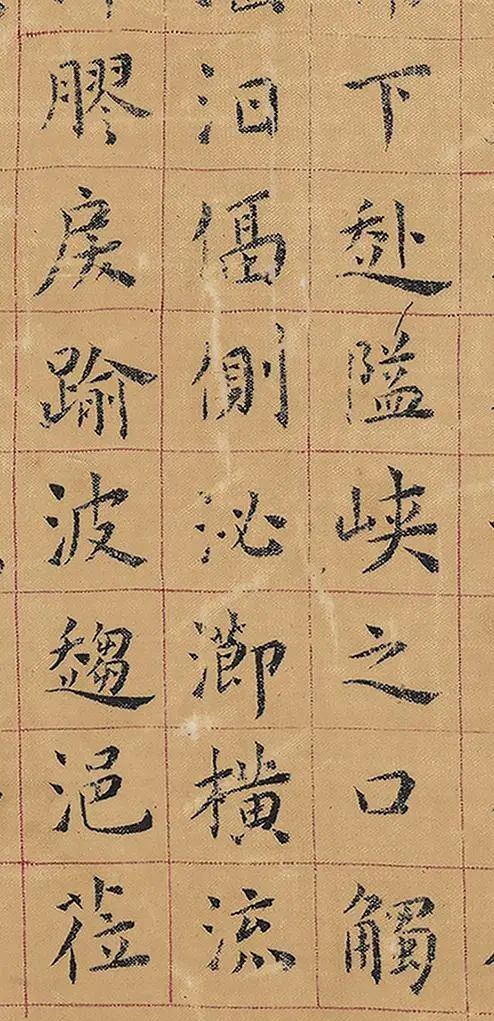 下赴隘峡之口觸
汩偪側泌瀄横流
膠戾踰波趨浥莅